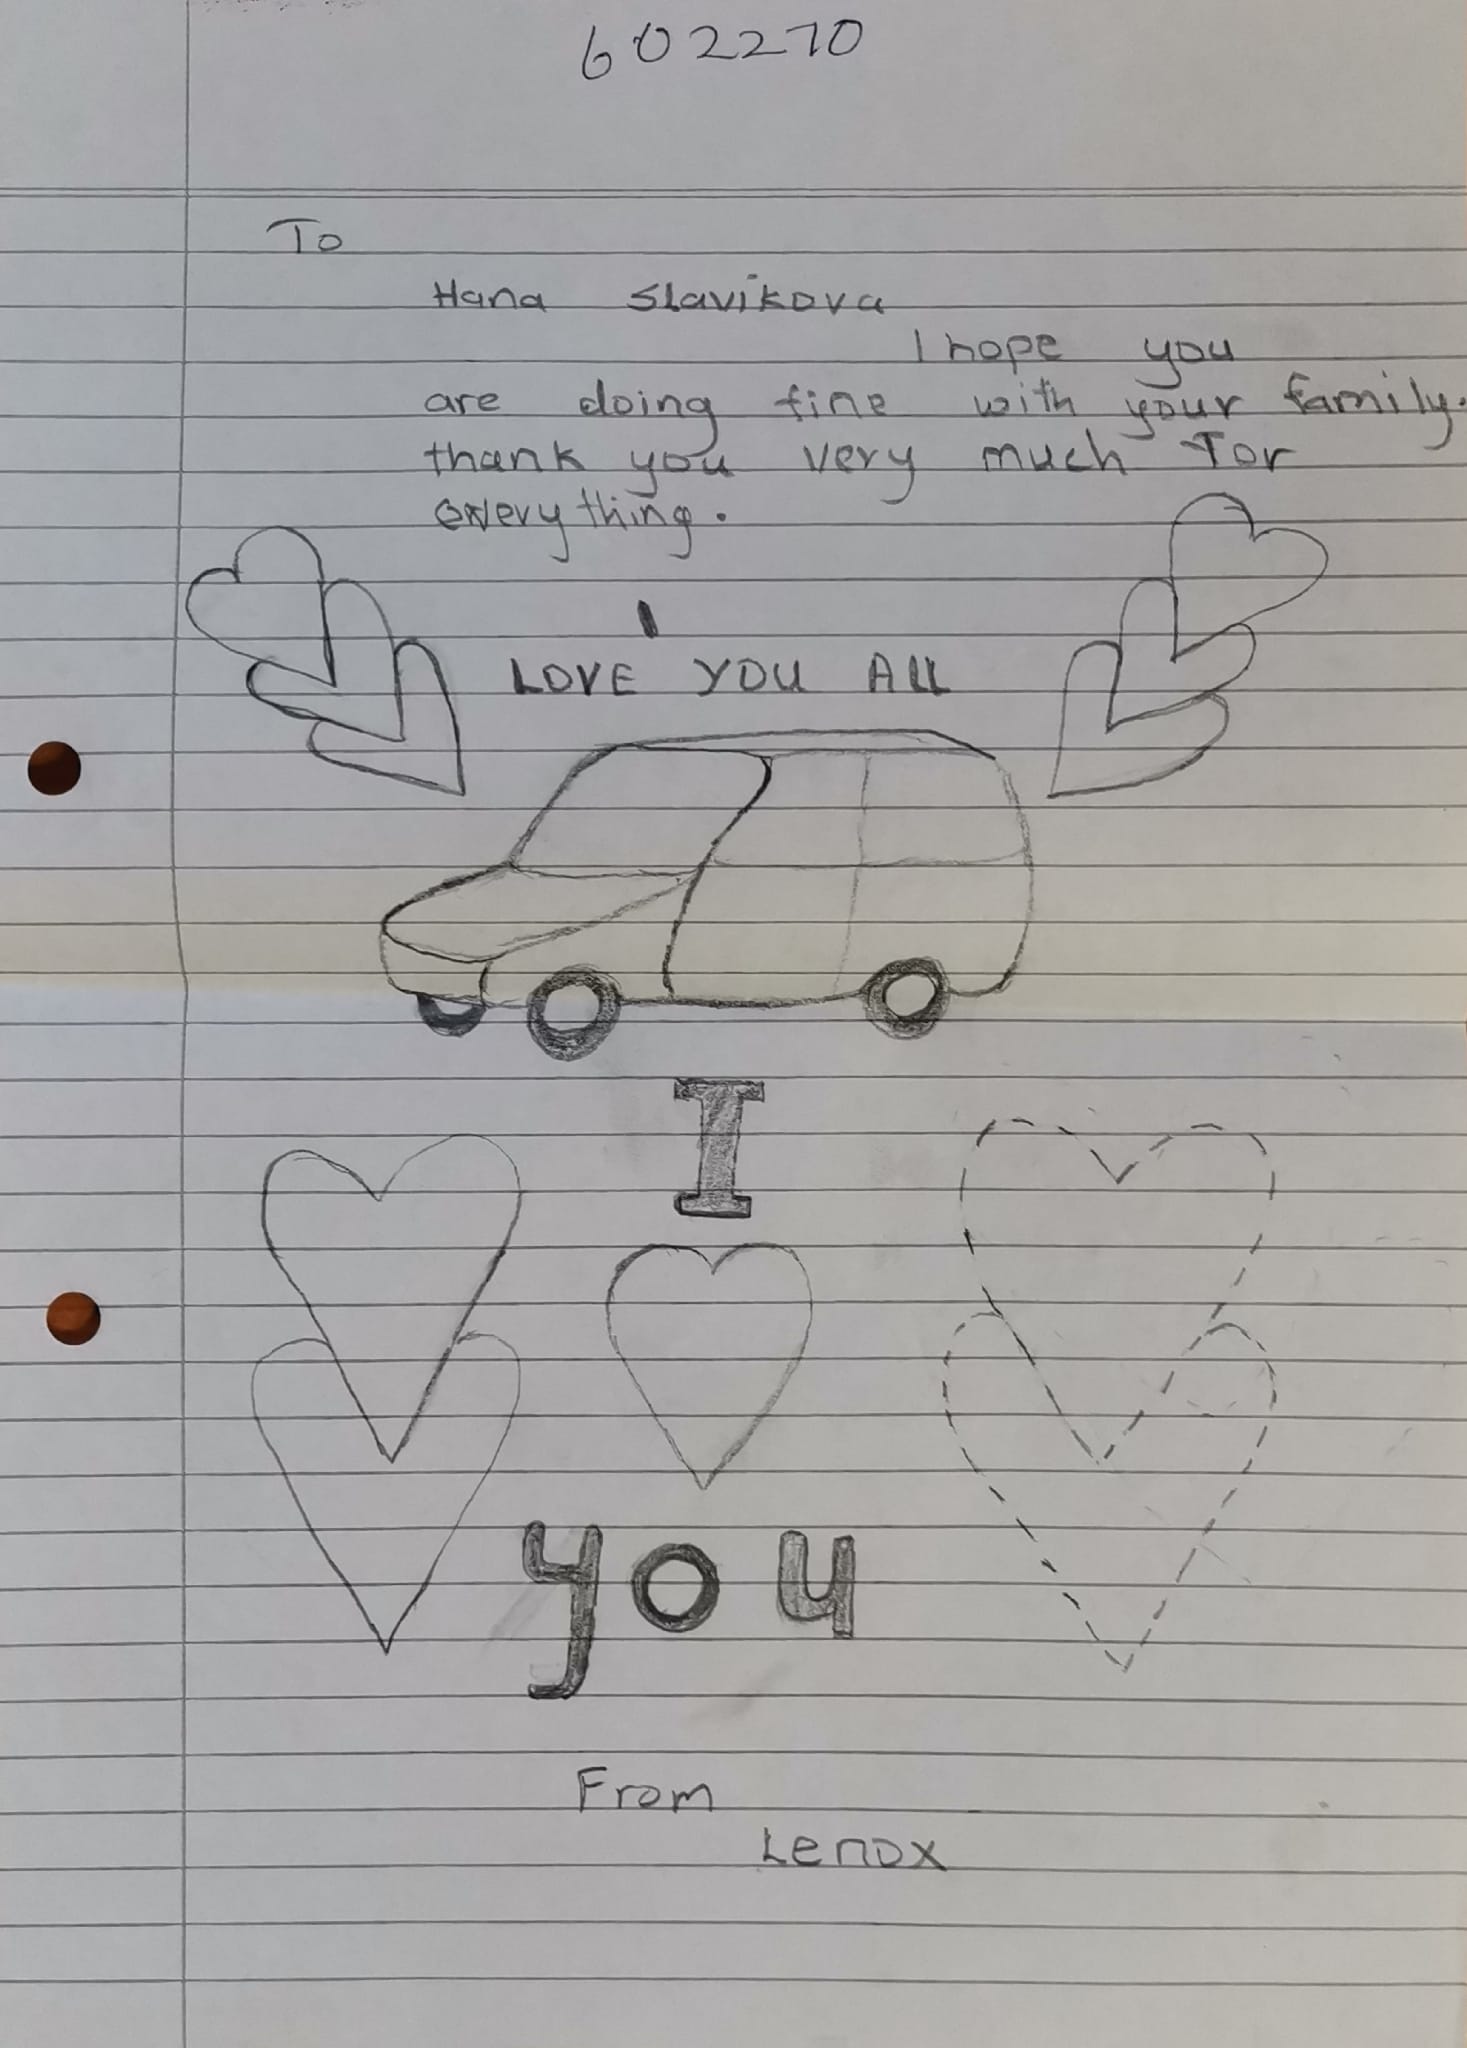 602270
To
Hana Slavikova
I hope you
are doing fine with your family.
thank you very much For
everything.
I
LOVE YOU ALL
I
you
From
Lenox